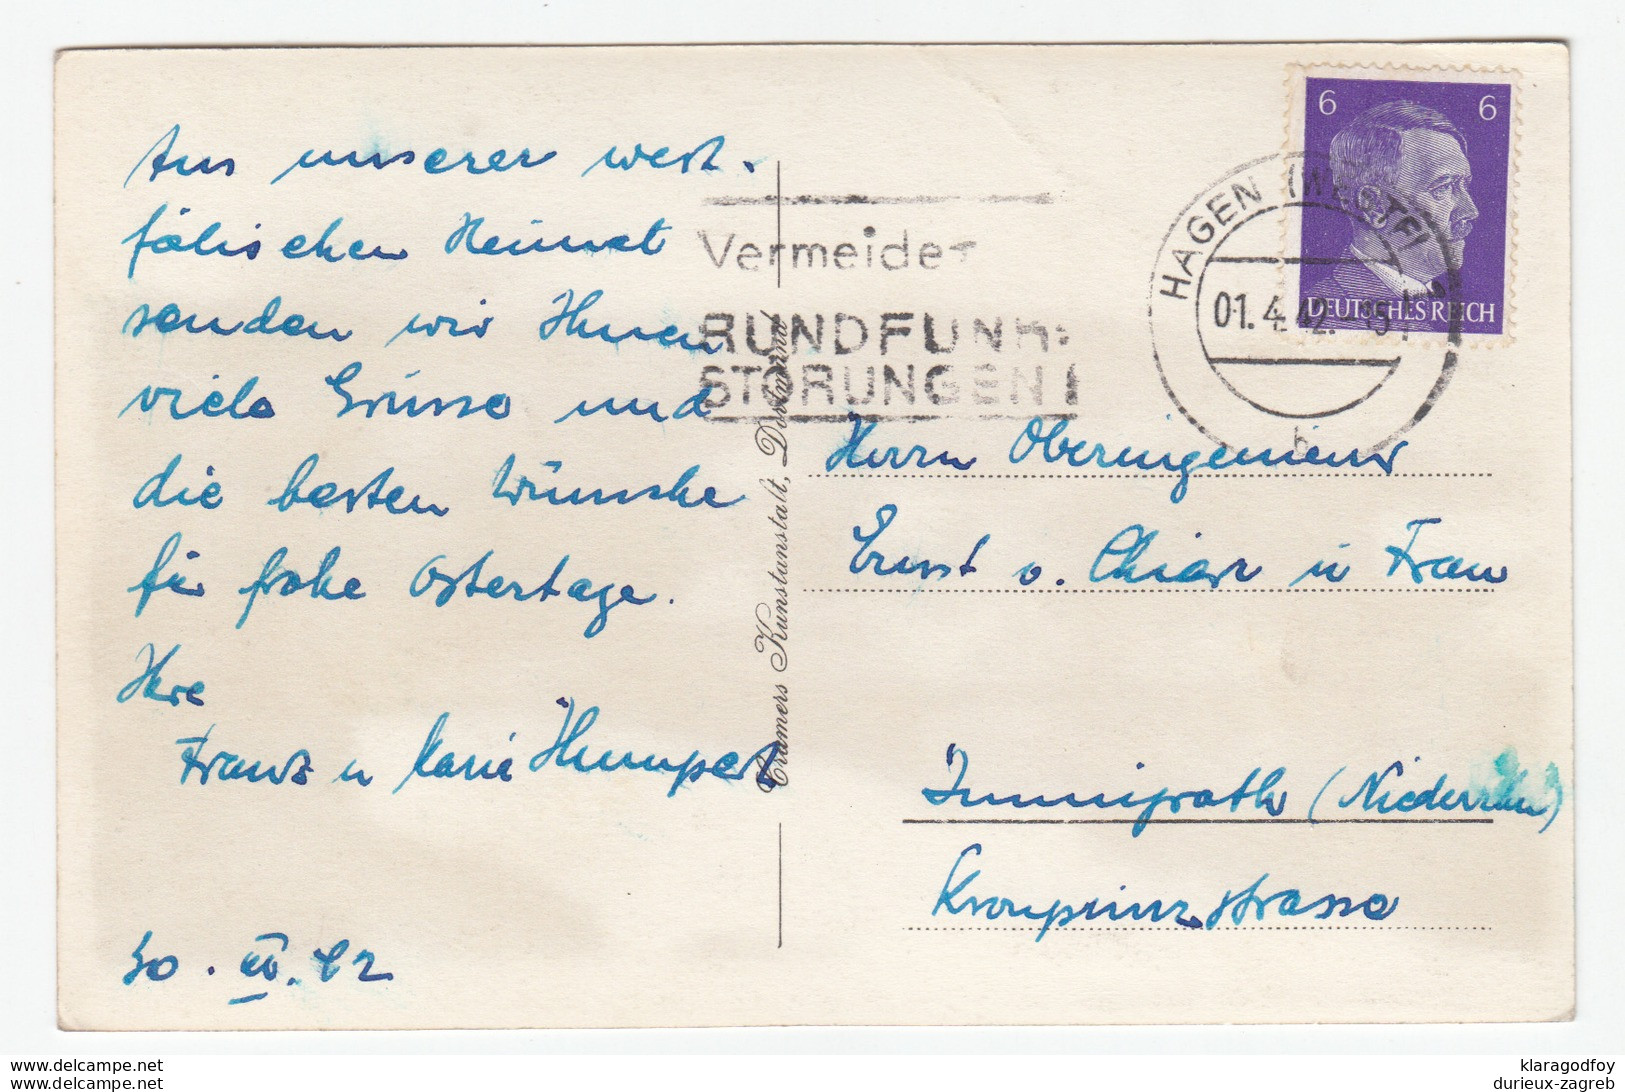 Aus unserer west-
fälischen Heimat
senden wir Ihnen
viele Grüsse und
die besten Wünsche
für frohe Ostertage.
Ihre
Franz u Marie Humpert
30. III. 42
Cramers Kunstanstalt, Dortmund
Vermeidet
RUNDFUNK-
STÖRUNGEN!
6 6
DEUTSCHES REICH
HAGEN (WESTF)
01.4.42.
b
Herrn Oberingenieur
Ernst v. Chiari u Frau
Immigrath (Niederrhein)
Kronprinzstrasse
klaragodfoy
durieux-zagreb
www.delcampe.net